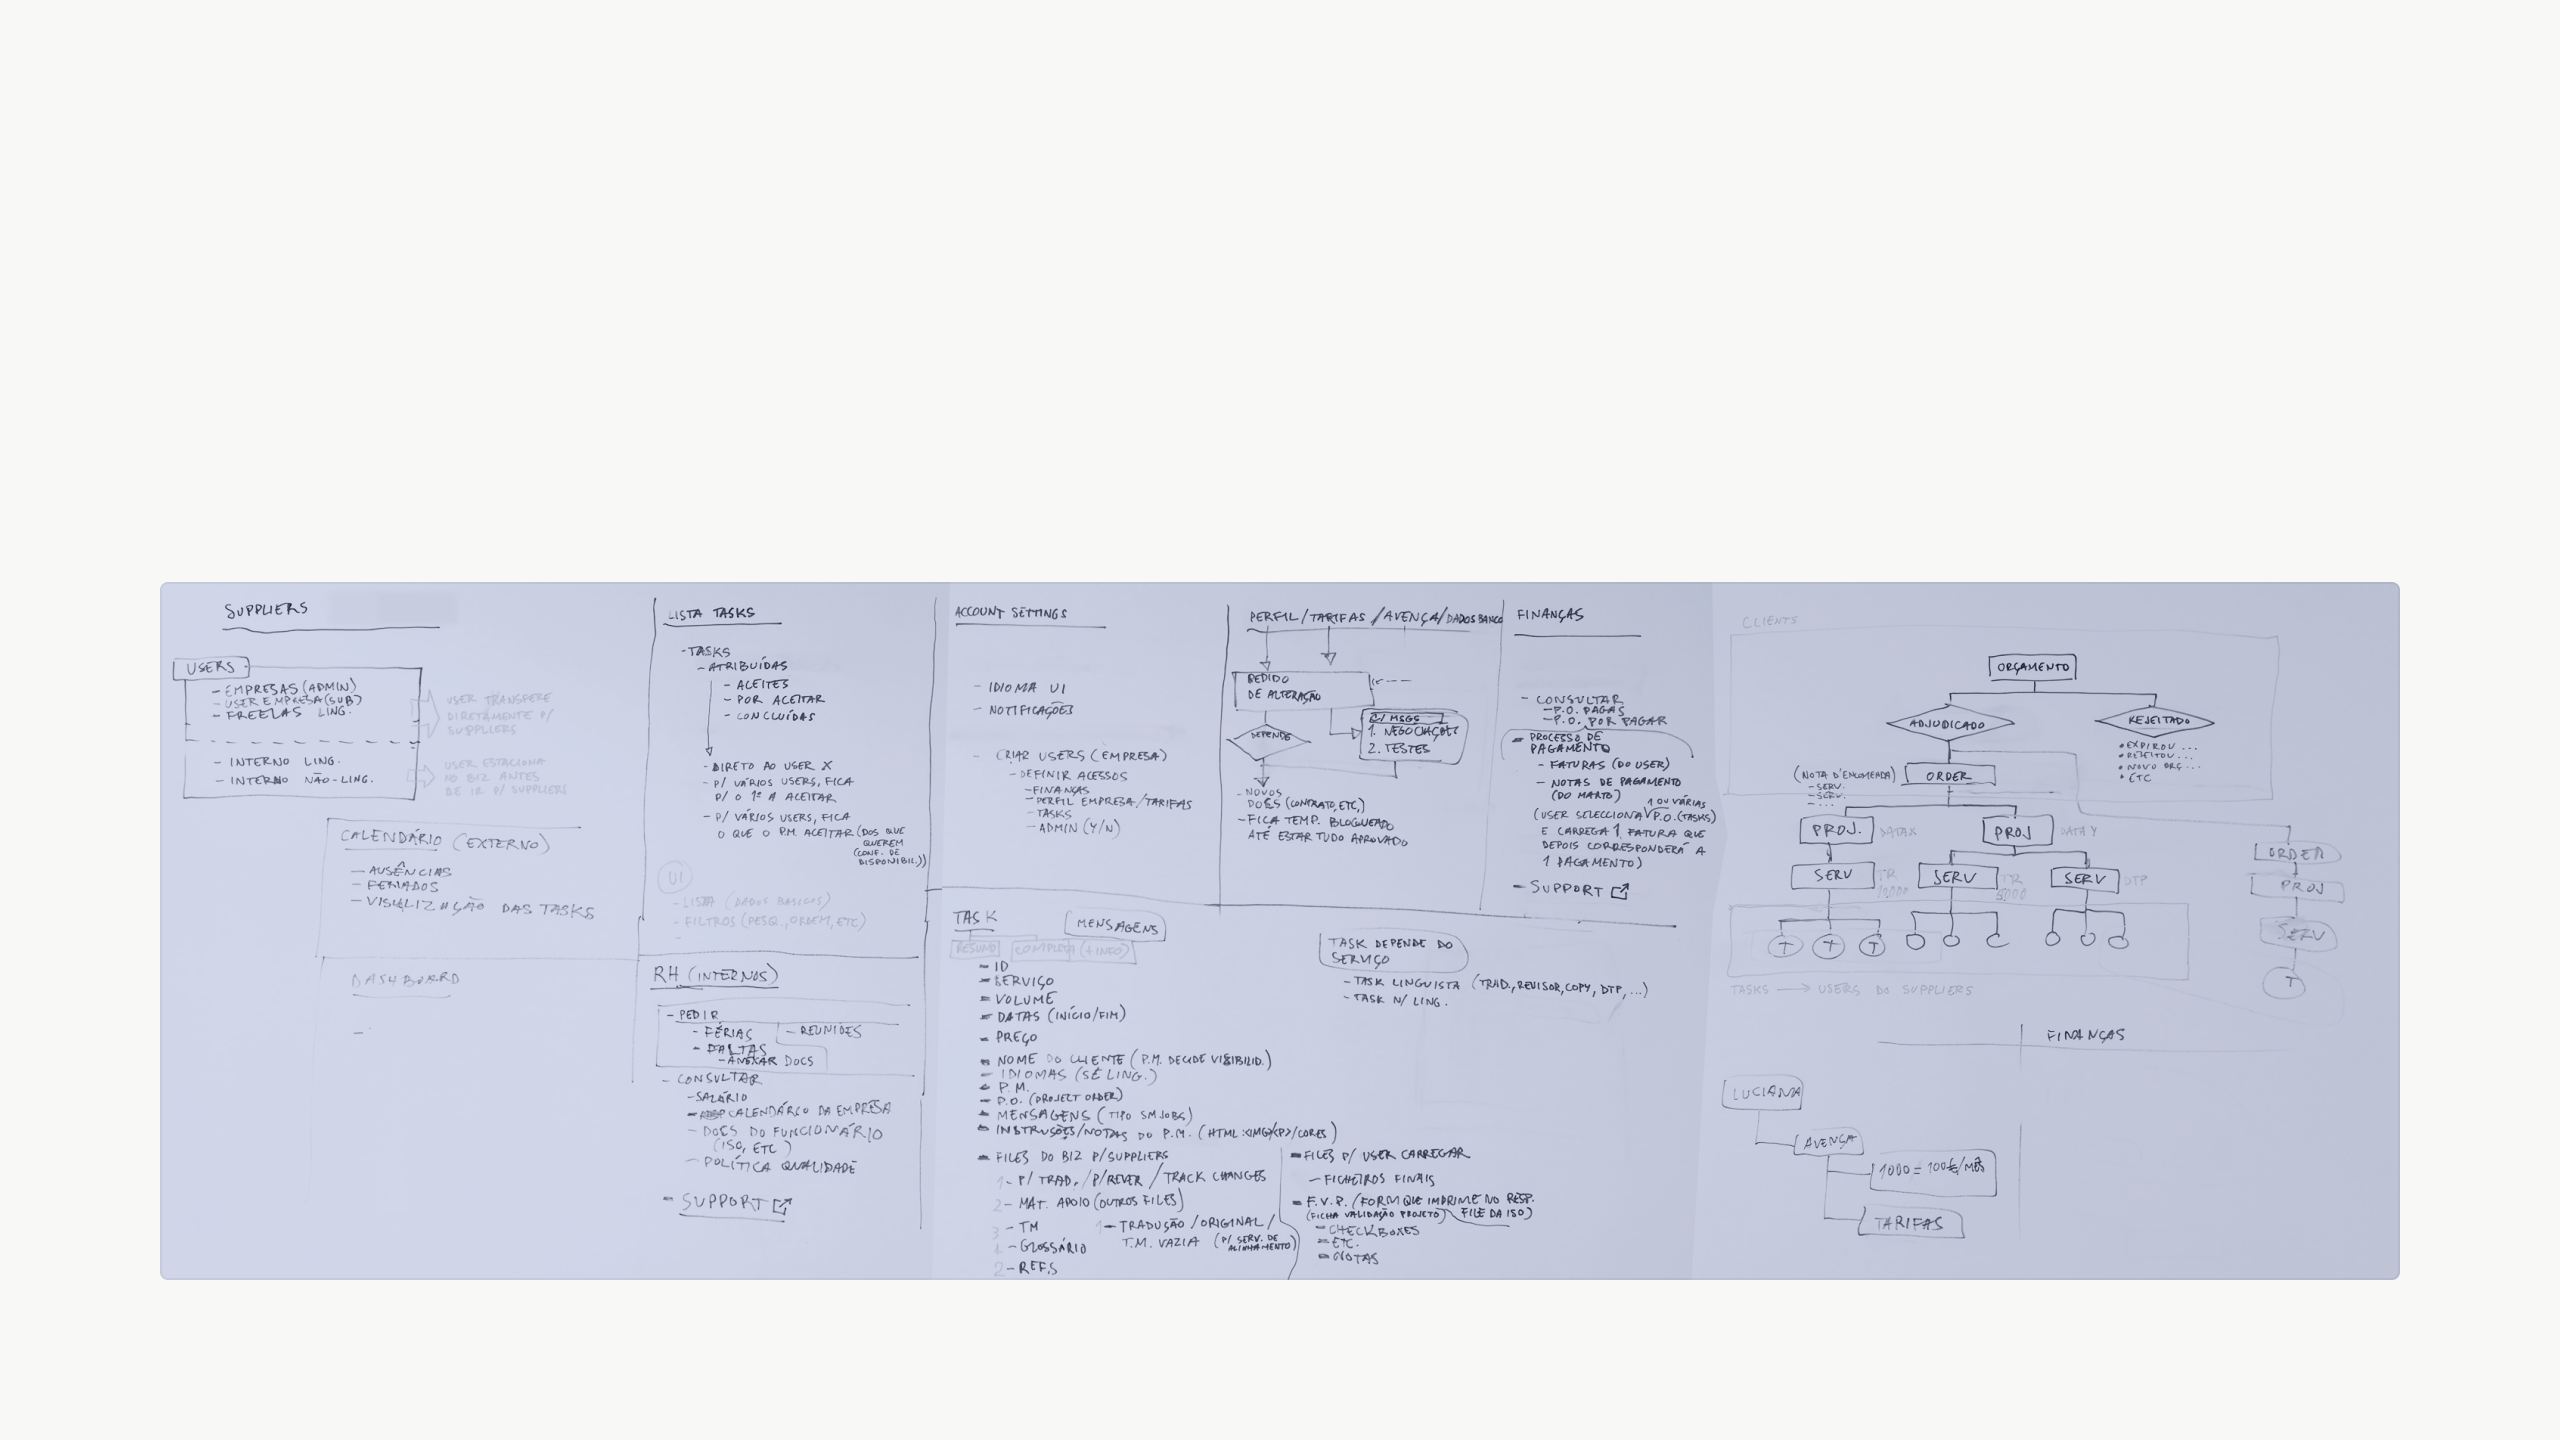 SUPPLIERS
USERS
- EMPRESAS (ADMIN)
- USER EMPRESA (SUB)
- FREELAS LING.
- INTERNO LING.
- INTERNO NÃO-LING.
USER TRANSFERE
DIRETAMENTE P/
SUPPLIERS
USER ESTACIONA
NO BIZ ANTES
DE IR P/ SUPPLIERS
CALENDÁRIO (EXTERNO)
- AUSÊNCIAS
- FERIADOS
- VISUALIZAÇÃO DAS TASKS
DASHBOARD
-
LISTA TASKS
- TASKS
- ATRIBUÍDAS
- ACEITES
- POR ACEITAR
- CONCLUÍDAS
- DIRETO AO USER X
- P/ VÁRIOS USERS, FICA
P/ O 1º A ACEITAR
- P/ VÁRIOS USERS, FICA
O QUE O P.M. ACEITAR (DOS QUE
QUEREM
(CONF. DE
DISPONIBIL.))
UI
- LISTA (DADOS BASICOS)
- FILTROS (PESQ., ORDEM, ETC)
-
RH (INTERNOS)
- PEDIR
- FÉRIAS
- REUNIÕES
- FALTAS
- ANEXAR DOCS
- CONSULTAR
- SALÁRIO
- CALENDÁRIO DA EMPRESA
- DOCS DO FUNCIONÁRIO
(ISO, ETC)
- POLÍTICA QUALIDADE
- SUPPORT
ACCOUNT SETTINGS
- IDIOMA UI
- NOTIFICAÇÕES
- CRIAR USERS (EMPRESA)
- DEFINIR ACESSOS
- FINANÇAS
- PERFIL EMPRESA/TARIFAS
- TASKS
- ADMIN (Y/N)
PERFIL/TARIFAS/AVENÇA/DADOS BANCO
PEDIDO
DE ALTERAÇÃO
DEPENDE
C/ MSGS
1. NEGOCIAÇÃO
2. TESTES
- NOVOS
DOCS (CONTRATO, ETC.)
- FICA TEMP. BLOQUEADO
ATÉ ESTAR TUDO APROVADO
FINANÇAS
- CONSULTAR
- P.O. PAGAS
- P.O. POR PAGAR
- PROCESSO DE
PAGAMENTO
- FATURAS (DO USER)
- NOTAS DE PAGAMENTO
(DO MARTO)
1 OU VÁRIAS
(USER SELECCIONA P.O. (TASKS)
E CARREGA 1 FATURA QUE
DEPOIS CORRESPONDERÁ A
1 PAGAMENTO)
- SUPPORT
TASK
MENSAGENS
RESUMO
COMPLETA (+ INFO)
- ID
- SERVIÇO
- VOLUME
- DATAS (INÍCIO/FIM)
- PREÇO
- NOME DO CLIENTE (P.M. DECIDE VISIBILID.)
- IDIOMAS (SE LING.)
- P.M.
- P.O. (PROJECT ORDER)
- MENSAGENS (TIPO SMJOBS)
- INSTRUÇÕES/NOTAS DO P.M. (HTML: <IMG><P>/CORES)
- FILES DO BIZ P/SUPPLIERS
1 - P/ TRAD. / P/REVER / TRACK CHANGES
2 - MAT. APOIO (OUTROS FILES)
3 - TM
- GLOSSÁRIO
2 - REFS
1 - TRADUÇÃO / ORIGINAL /
T.M. VAZIA (P/ SERV. DE
ALINHAMENTO)
TASK DEPENDE DO
SERVIÇO
- TASK LINGUISTA (TRAD., REVISOR, COPY, DTP, ...)
- TASK N/ LING.
- FILES P/ USER CARREGAR
- FICHEIROS FINAIS
- F.V.P. (FORM QUE IMPRIME NO RESP.
(FICHA VALIDAÇÃO PROJETO) FILE DA ISO)
- CHECKBOXES
- ETC.
- NOTAS
CLIENTS
ORÇAMENTO
ADJUDICADO
REJEITADO
• EXPIROU ...
• REJEITOU ...
• NOVO ORÇ ...
• ETC
(NOTA D'ENCOMENDA)
- SERV.
- SERV.
- ...
ORDER
PROJ.
DATA X
PROJ
DATA Y
SERV
TR
10000
SERV
TR
5000
SERV
DTP
T T T
ORDER
PROJ
SERV
T
TASKS → USERS DO SUPPLIERS
FINANÇAS
LUCIANA
AVENÇA
1000 = 100€/MÊS
TARIFAS